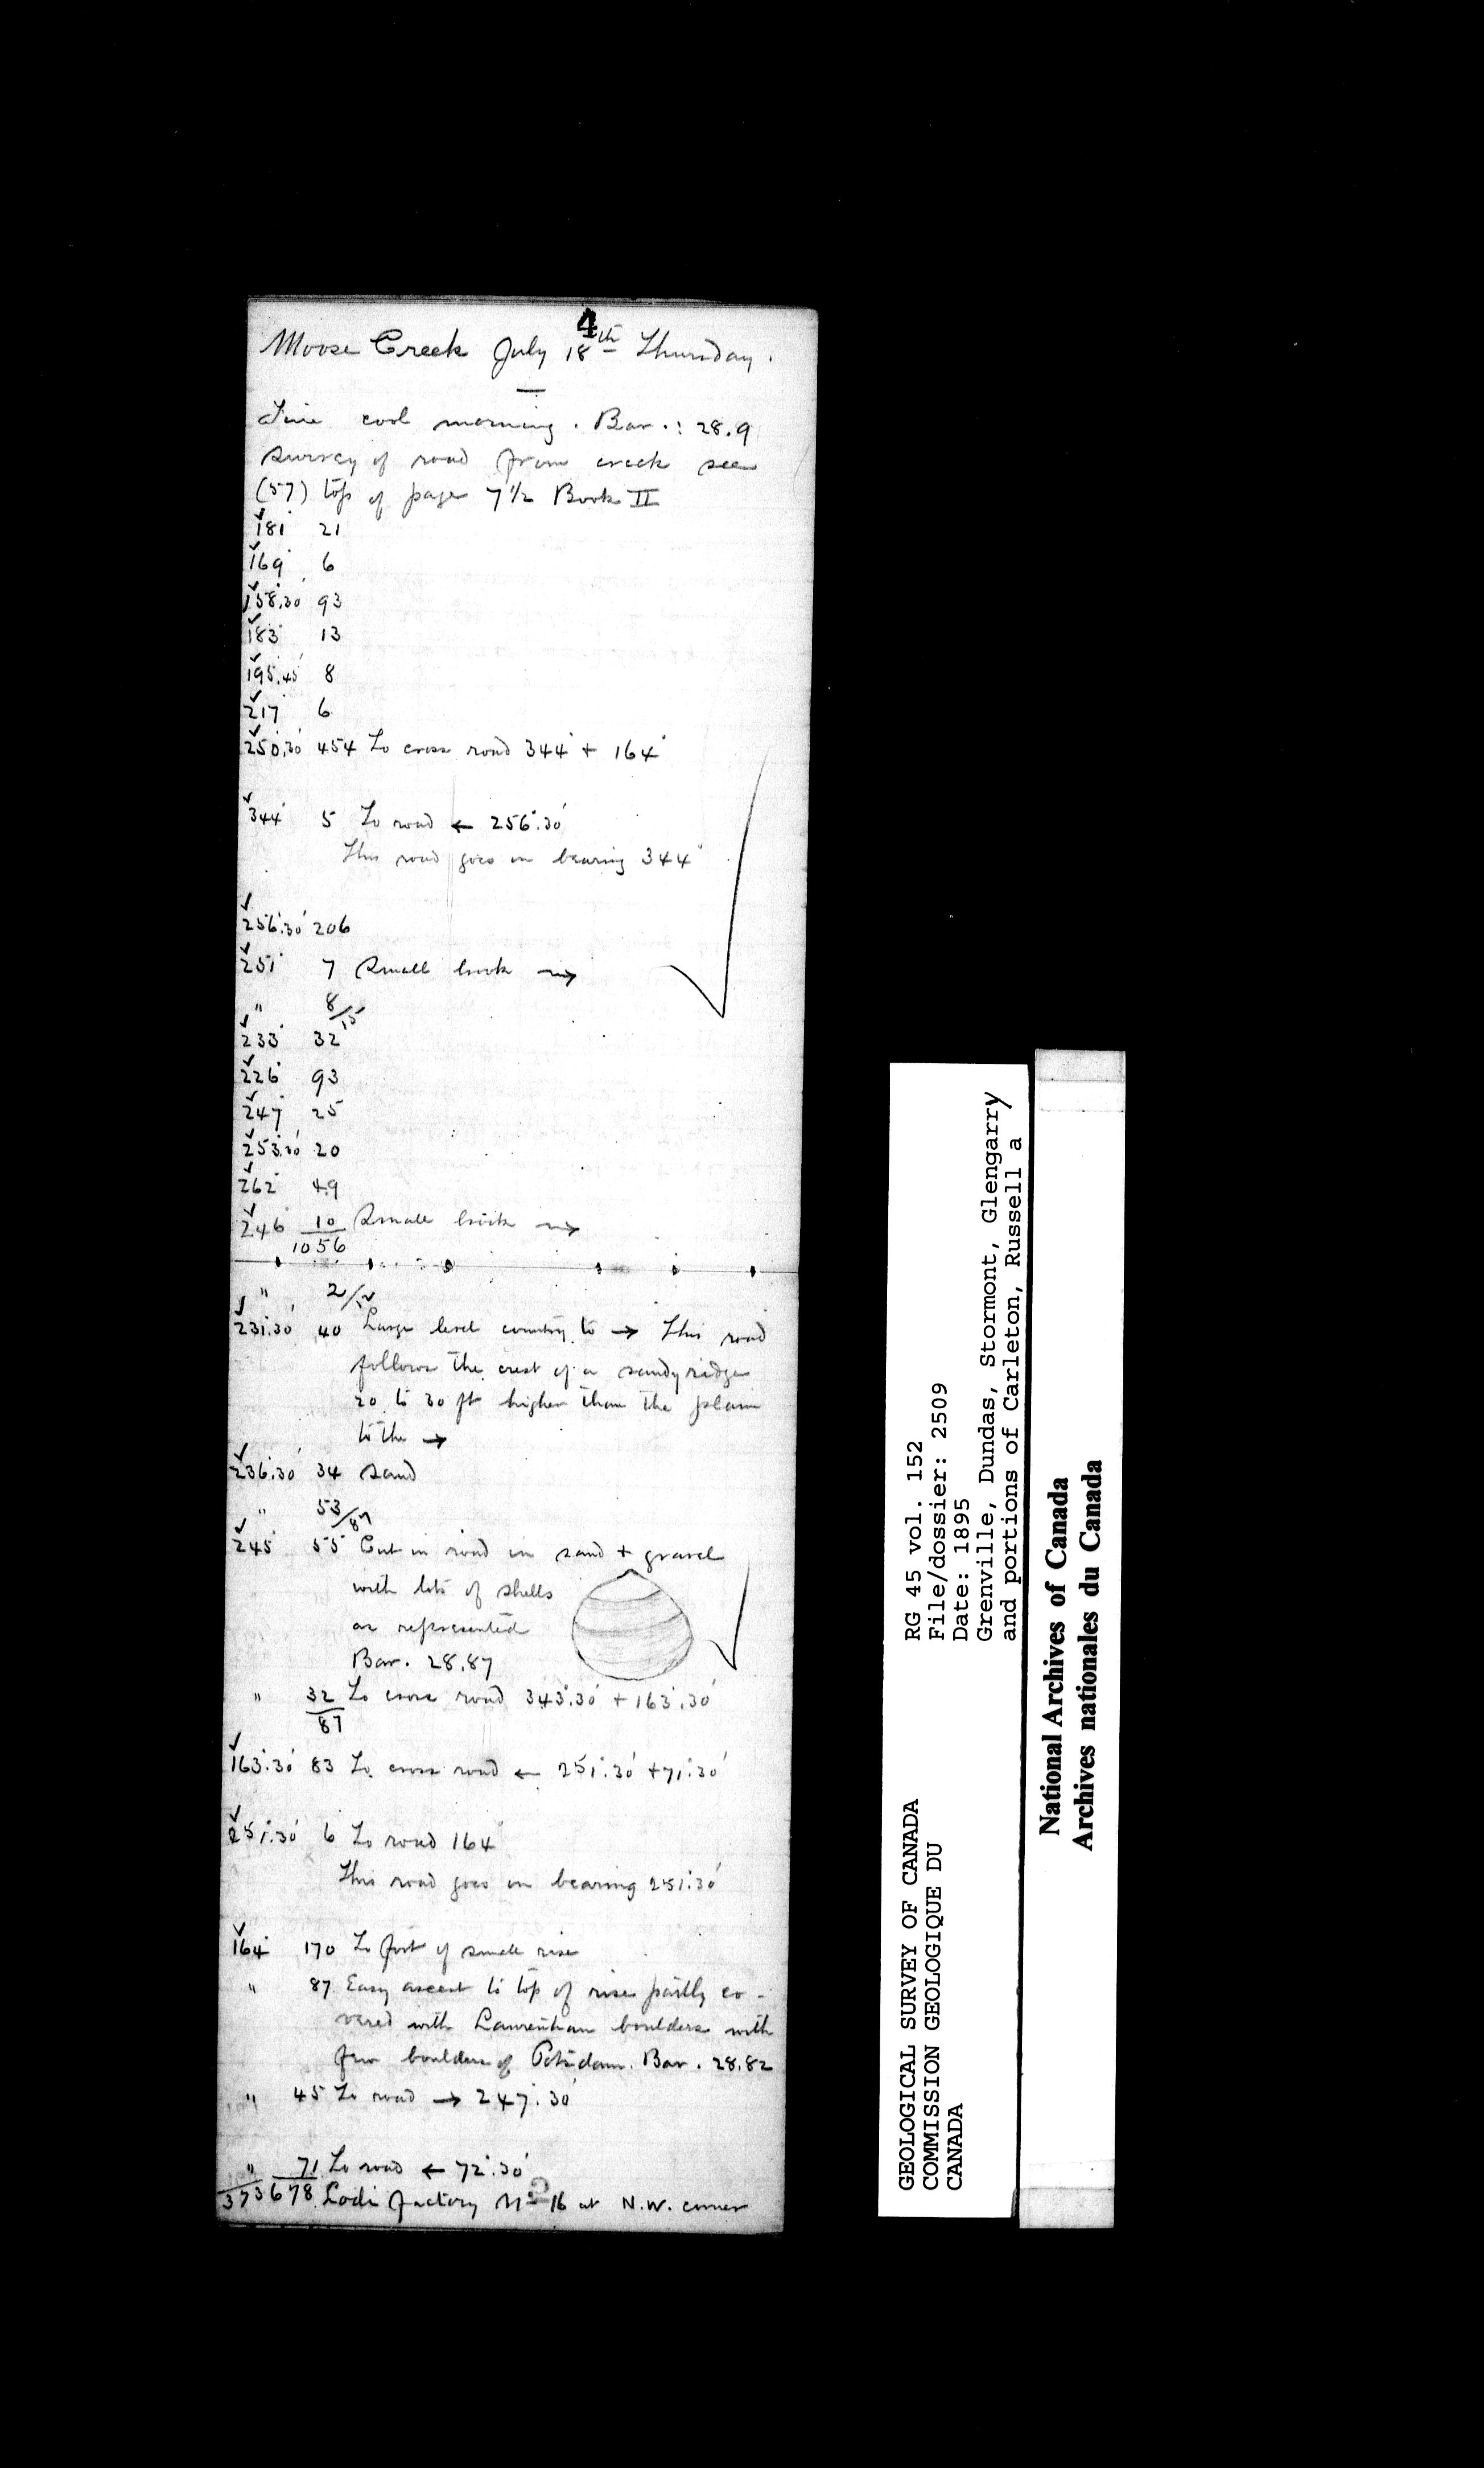 4
Moose Creek July 18th Thursday.
Fine cool morning. Bar.: 28.9
Survey of road from creek see
(57) top of page 7 1/2 Book II
181° 21
169° 6
158°.30' 93
183° 13
195°.45' 8
217° 6
250°.30' 454 To cross road 344° + 164°
344° 5 To road ← 256°.30'
This road goes on bearing 344°
256°.30' 206
251° 7 Small brook →
" 8/15
233° 32
226° 93
247° 25
253°.30' 20
262° 49
246° 10 Small brook →
1056
" 2/12
231°.30' 40 Large level country to → This road
follows the crest of a sandy ridge
20 to 30 ft higher than the plain
to the →
236°.30' 34 sand
" 53/87
245° 55 Cut in road in sand + gravel
with lots of shells
as represented
Bar. 28.87
" 32 To cross road 343°.30' + 163°.30'
87
163°.30' 83 To cross road ← 251°.30' + 71°.30'
251°.30' 6 To road 164°
This road goes on bearing 251°.30'
164° 170 To foot of small rise
" 87 Easy ascent to top of rise partly co-
vered with Laurentian boulders with
few boulders of Potsdam. Bar. 28.82
" 45 To road → 247°.30'
" 71 To road ← 72°.30'
373 678 Lodi factory No 16 at N.W. corner
GEOLOGICAL SURVEY OF CANADA
COMMISSION GEOLOGIQUE DU
CANADA
RG 45 vol. 152
File/dossier: 2509
Date: 1895
Grenville, Dundas, Stormont, Glengarry
and portions of Carleton, Russell a
National Archives of Canada
Archives nationales du Canada